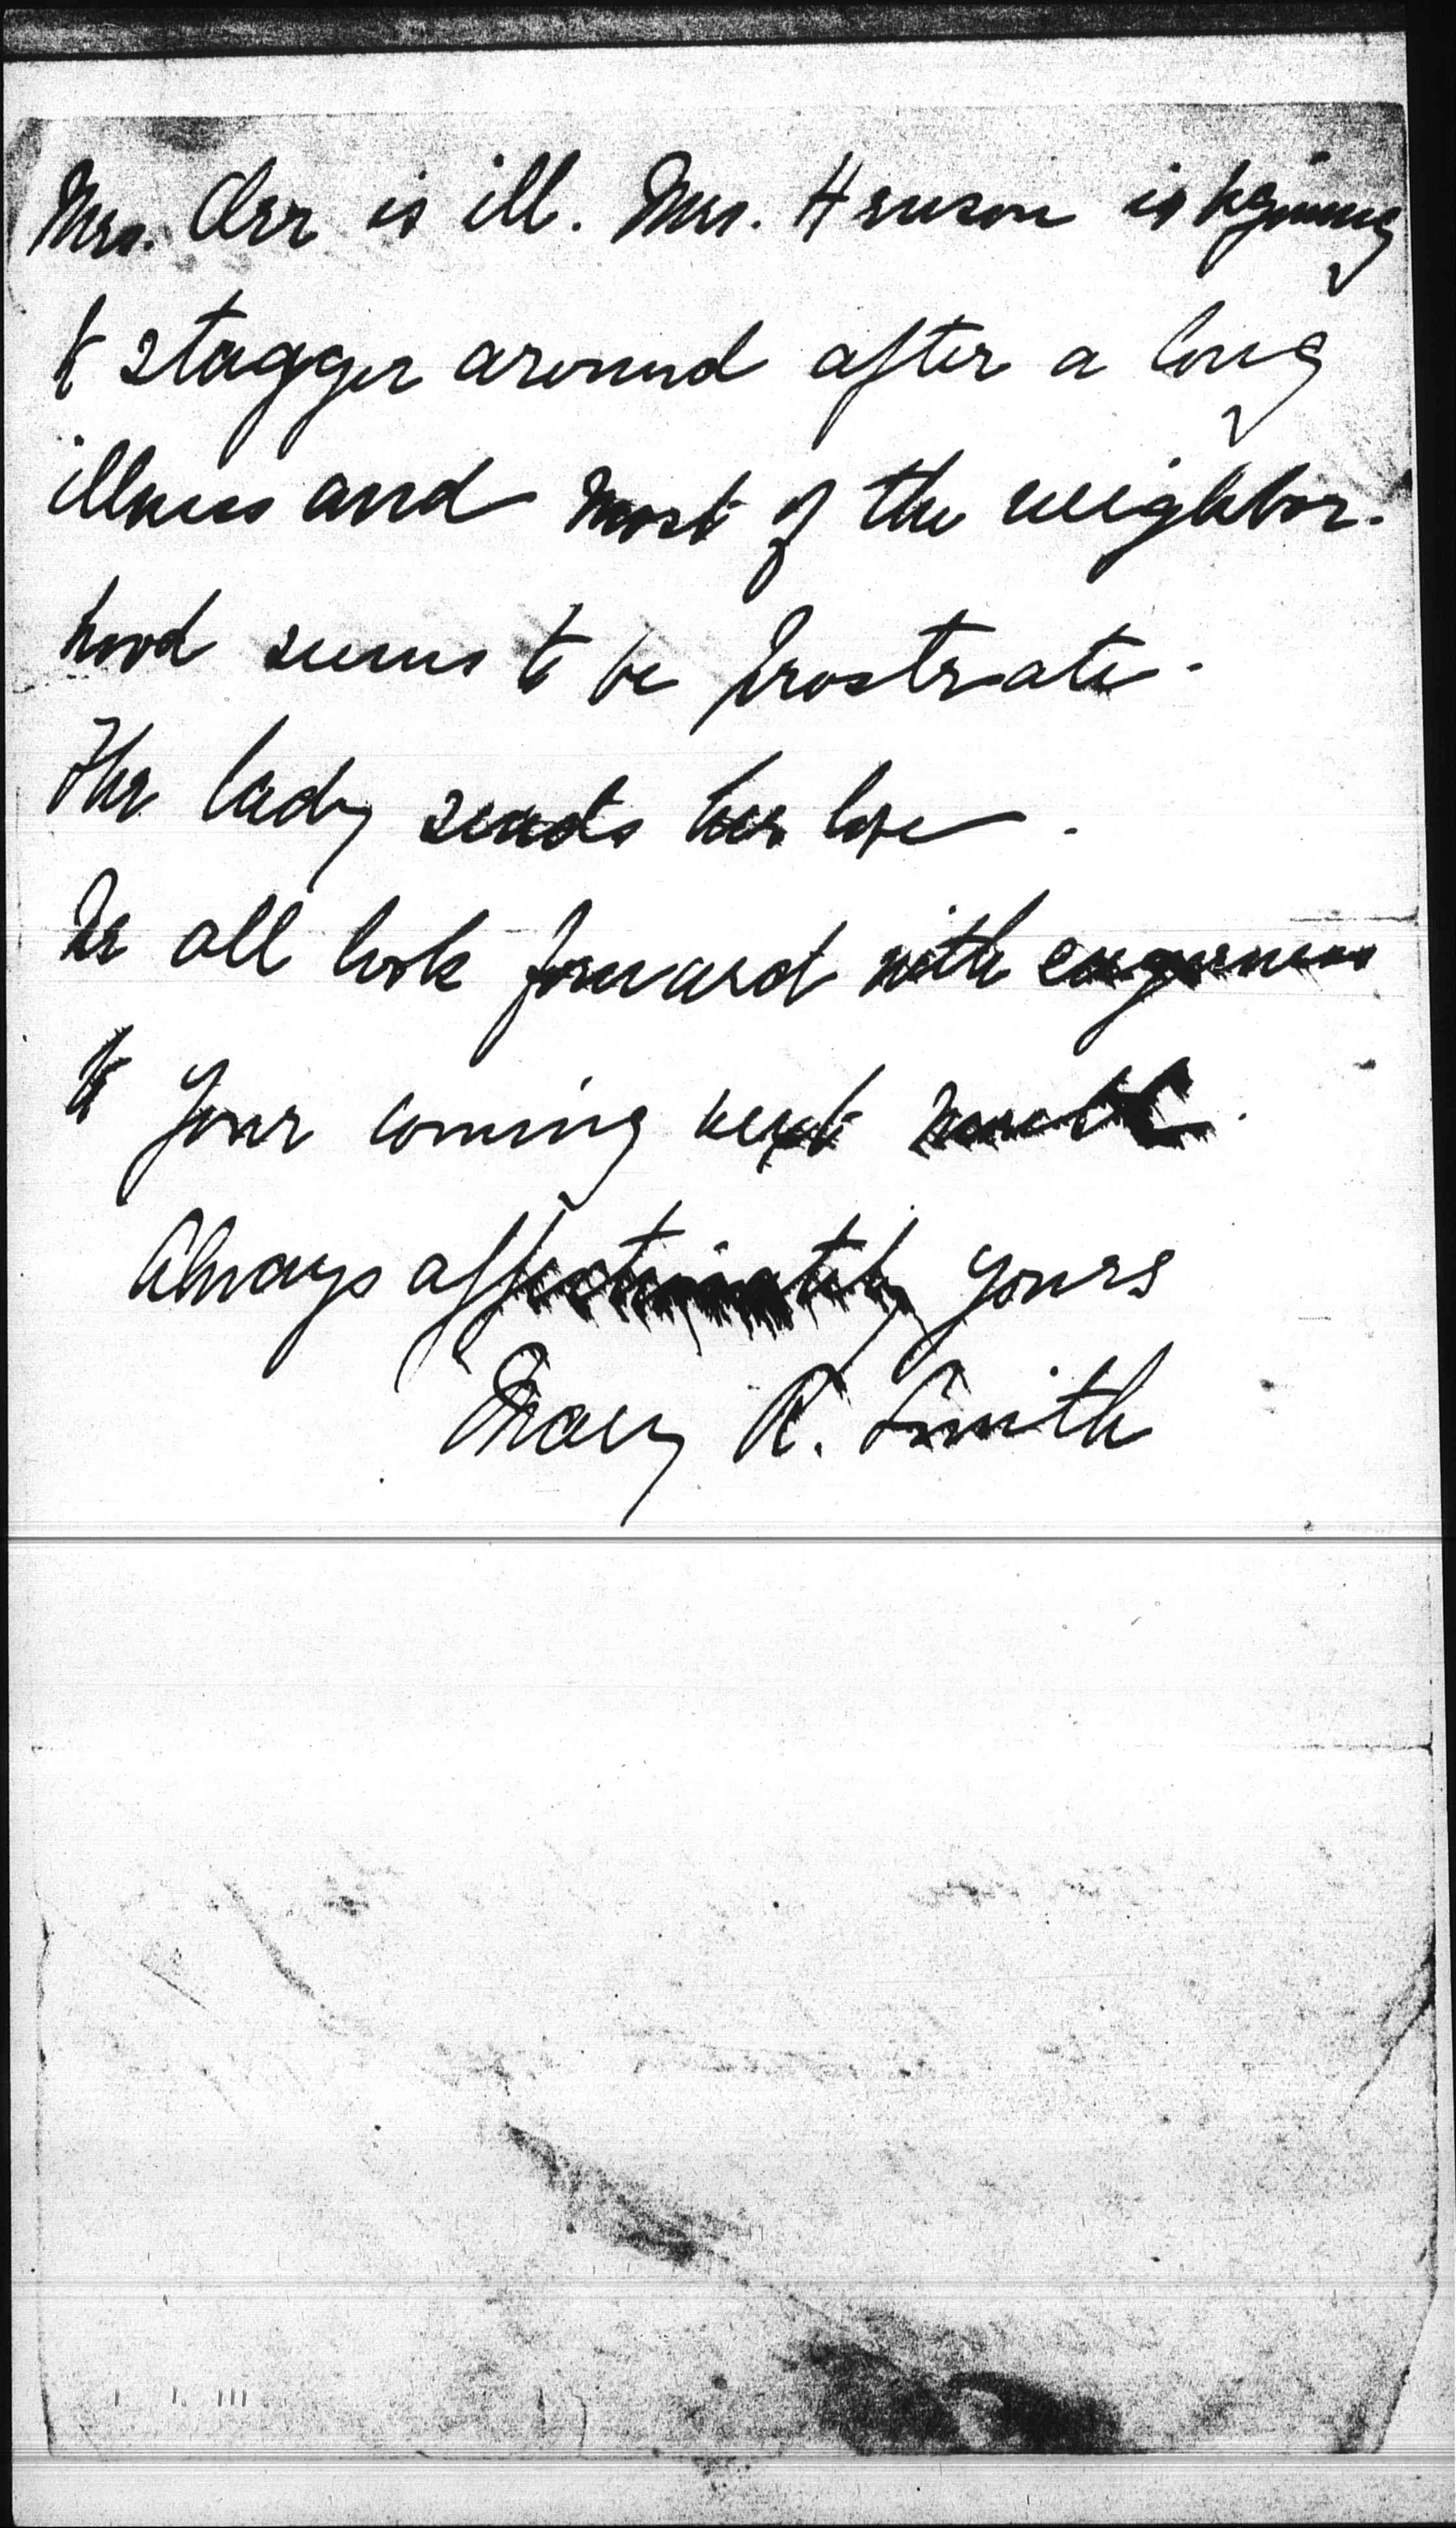 Mrs. Orr is ill. Mrs. Henson is begining
to stagger around after a long
illness and most of the neighbor-
hood seems to be prostrate.
The lady sends her love.
We all look forward with eagerness
to your coming next month.
Always affectionately yours
Mary R. Smith